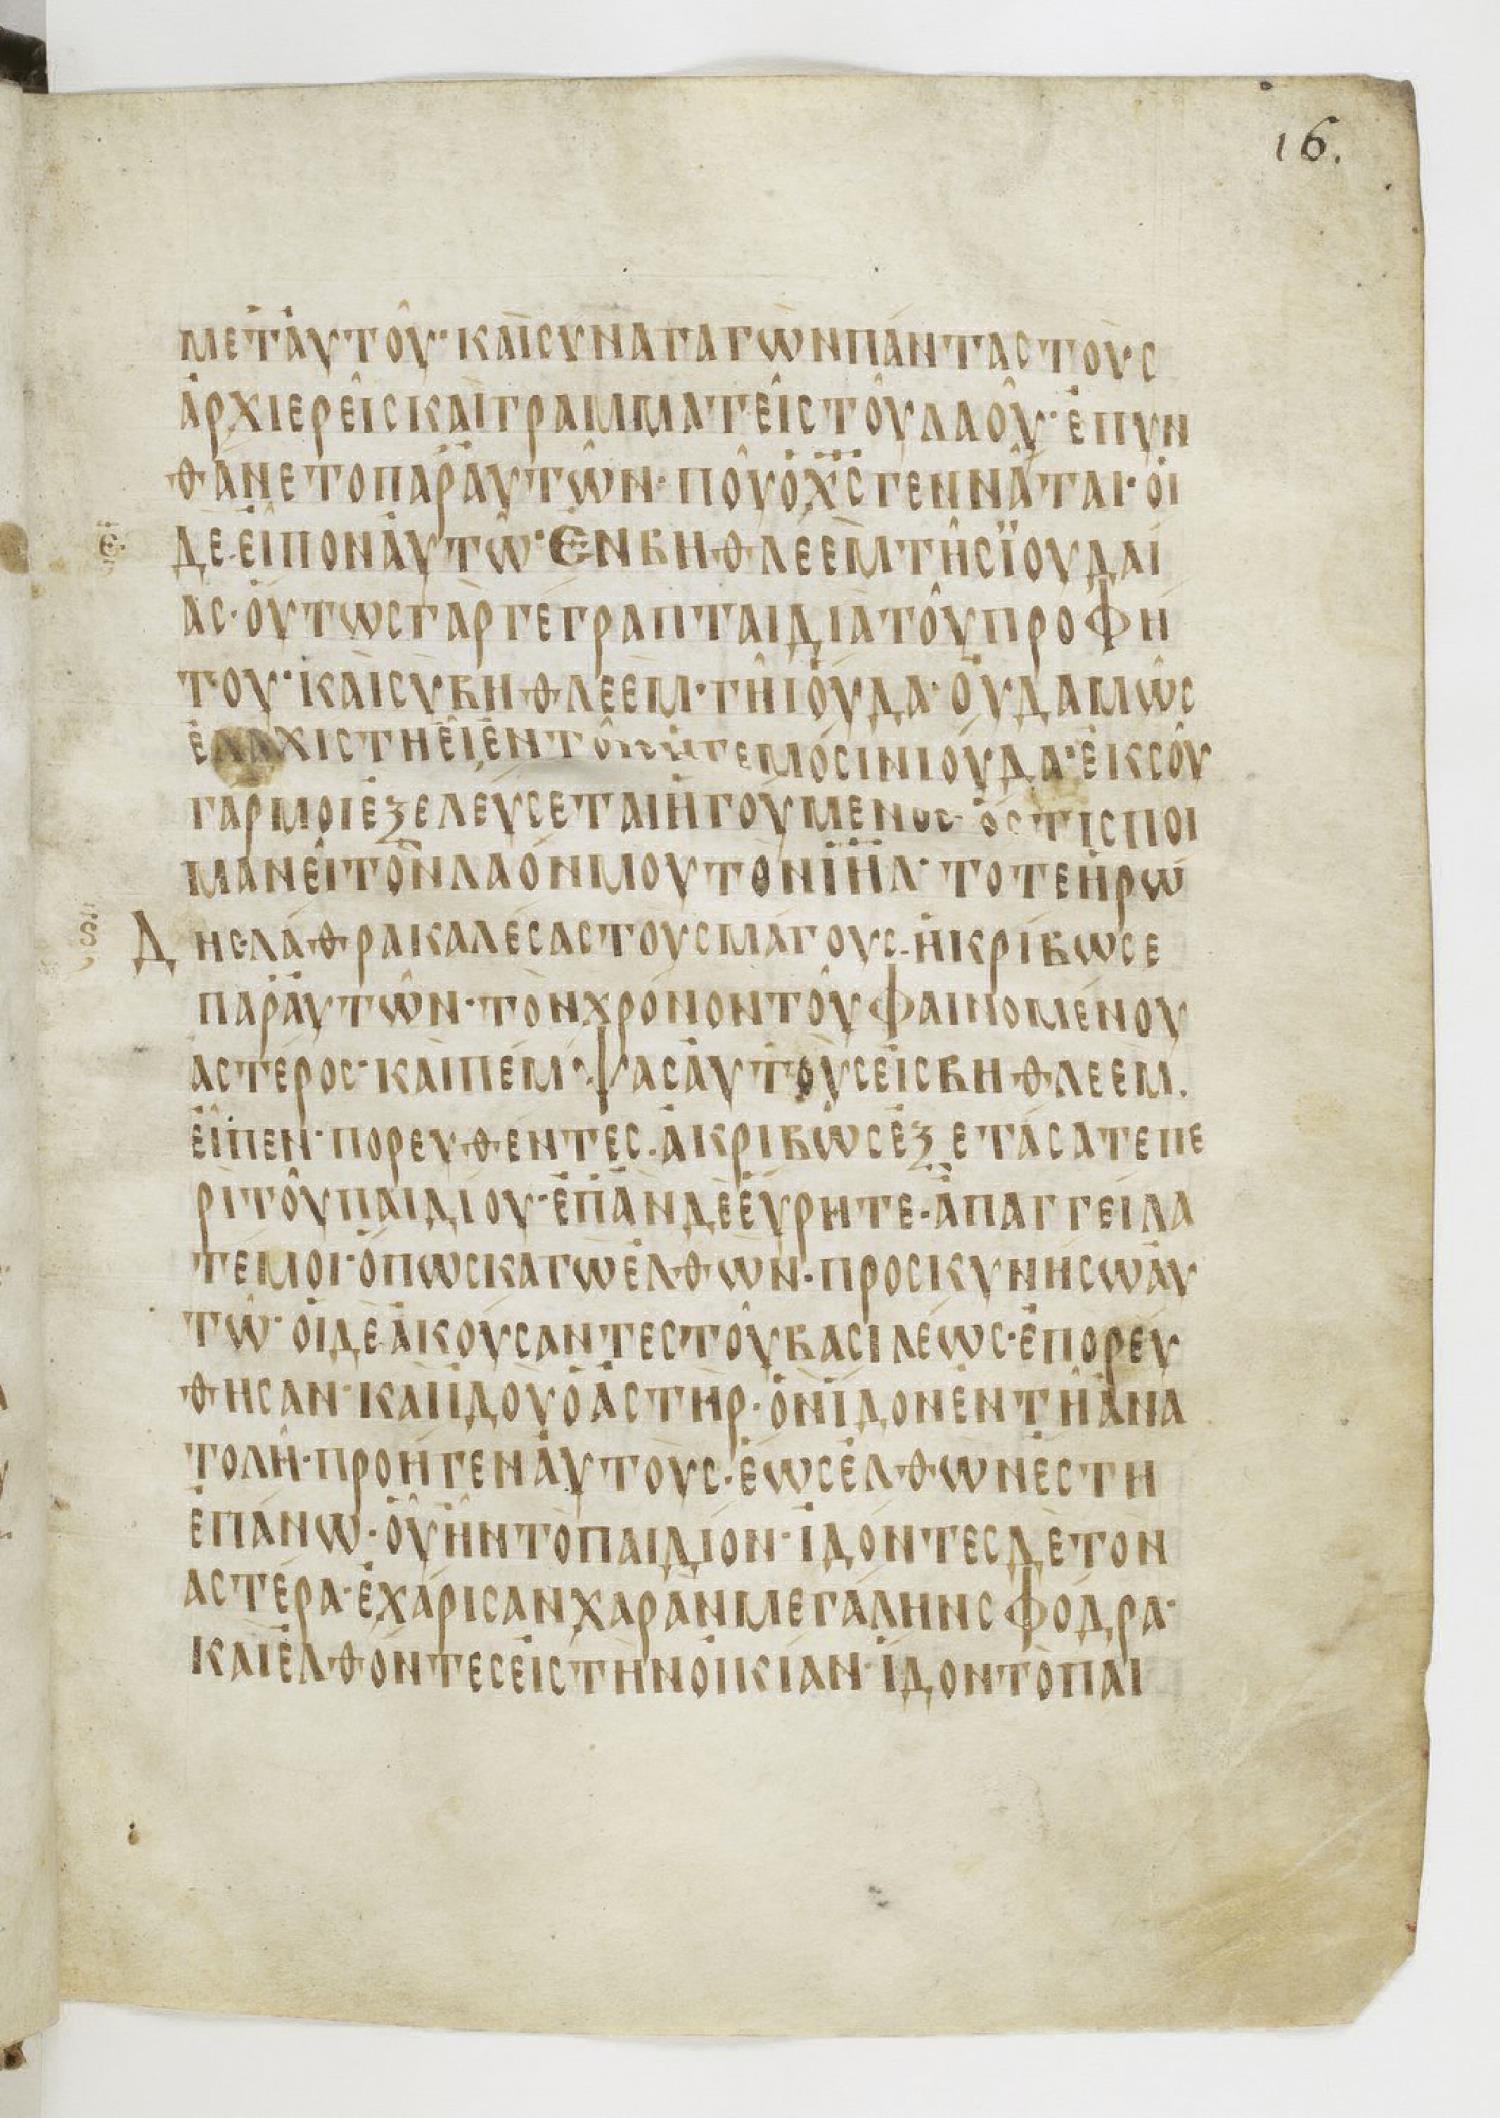 16.
ΜΕΤ ΑΥΤΟΥ· ΚΑΙ ΣΥΝΑΓΑΓΩΝ ΠΑΝΤΑΣ ΤΟΥΣ
ΑΡΧΙΕΡΕΙΣ ΚΑΙ ΓΡΑΜΜΑΤΕΙΣ ΤΟΥ ΛΑΟΥ· ΕΠΥΝ
ΘΑΝΕΤΟ ΠΑΡ ΑΥΤΩΝ· ΠΟΥ Ο ΧΣ ΓΕΝΝΑΤΑΙ· ΟΙ
ΔΕ ΕΙΠΟΝ ΑΥΤΩ· ΕΝ ΒΗΘΛΕΕΜ ΤΗΣ ΪΟΥΔΑΙ
ΑΣ· ΟΥΤΩΣ ΓΑΡ ΓΕΓΡΑΠΤΑΙ ΔΙΑ ΤΟΥ ΠΡΟΦΗ
ΤΟΥ· ΚΑΙ ΣΥ ΒΗΘΛΕΕΜ· ΓΗ ΙΟΥΔΑ· ΟΥΔΑΜΩΣ
ΕΛΑΧΙΣΤΗ ΕΙ ΕΝ ΤΟΙΣ ΗΓΕΜΟΣΙΝ ΙΟΥΔΑ· ΕΚ ΣΟΥ
ΓΑΡ ΜΟΙ ΕΞΕΛΕΥΣΕΤΑΙ ΗΓΟΥΜΕΝΟΣ· ΟΣΤΙΣ ΠΟΙ
ΜΑΝΕΙ ΤΟΝ ΛΑΟΝ ΜΟΥ ΤΟΝ ΙΗΛ· ΤΟΤΕ ΗΡΩ
Δ ΗΣ· ΛΑΘΡΑ ΚΑΛΕΣΑΣ ΤΟΥΣ ΜΑΓΟΥΣ· ΗΚΡΙΒΩΣΕ
ΠΑΡ ΑΥΤΩΝ· ΤΟΝ ΧΡΟΝΟΝ ΤΟΥ ΦΑΙΝΟΜΕΝΟΥ
ΑΣΤΕΡΟΣ· ΚΑΙ ΠΕΜΨΑΣ ΑΥΤΟΥΣ ΕΙΣ ΒΗΘΛΕΕΜ.
ΕΙΠΕΝ· ΠΟΡΕΥΘΕΝΤΕΣ· ΑΚΡΙΒΩΣ ΕΞΕΤΑΣΑΤΕ ΠΕ
ΡΙ ΤΟΥ ΠΑΙΔΙΟΥ· ΕΠΑΝ ΔΕ ΕΥΡΗΤΕ· ΑΠΑΓΓΕΙΛΑ
ΤΕ ΜΟΙ· ΟΠΩΣ ΚΑΓΩ ΕΛΘΩΝ· ΠΡΟΣΚΥΝΗΣΩ ΑΥ
ΤΩ· ΟΙ ΔΕ ΑΚΟΥΣΑΝΤΕΣ ΤΟΥ ΒΑΣΙΛΕΩΣ· ΕΠΟΡΕΥ
ΘΗΣΑΝ· ΚΑΙ ΙΔΟΥ Ο ΑΣΤΗΡ· ΟΝ ΙΔΟΝ ΕΝ ΤΗ ΑΝΑ
ΤΟΛΗ· ΠΡΟΗΓΕΝ ΑΥΤΟΥΣ· ΕΩΣ ΕΛΘΩΝ ΕΣΤΗ
ΕΠΑΝΩ· ΟΥ ΗΝ ΤΟ ΠΑΙΔΙΟΝ· ΙΔΟΝΤΕΣ ΔΕ ΤΟΝ
ΑΣΤΕΡΑ· ΕΧΑΡΙΣΑΝ ΧΑΡΑΝ ΜΕΓΑΛΗΝ ΣΦΟΔΡΑ·
ΚΑΙ ΕΛΘΟΝΤΕΣ ΕΙΣ ΤΗΝ ΟΙΚΙΑΝ· ΙΔΟΝ ΤΟ ΠΑΙ